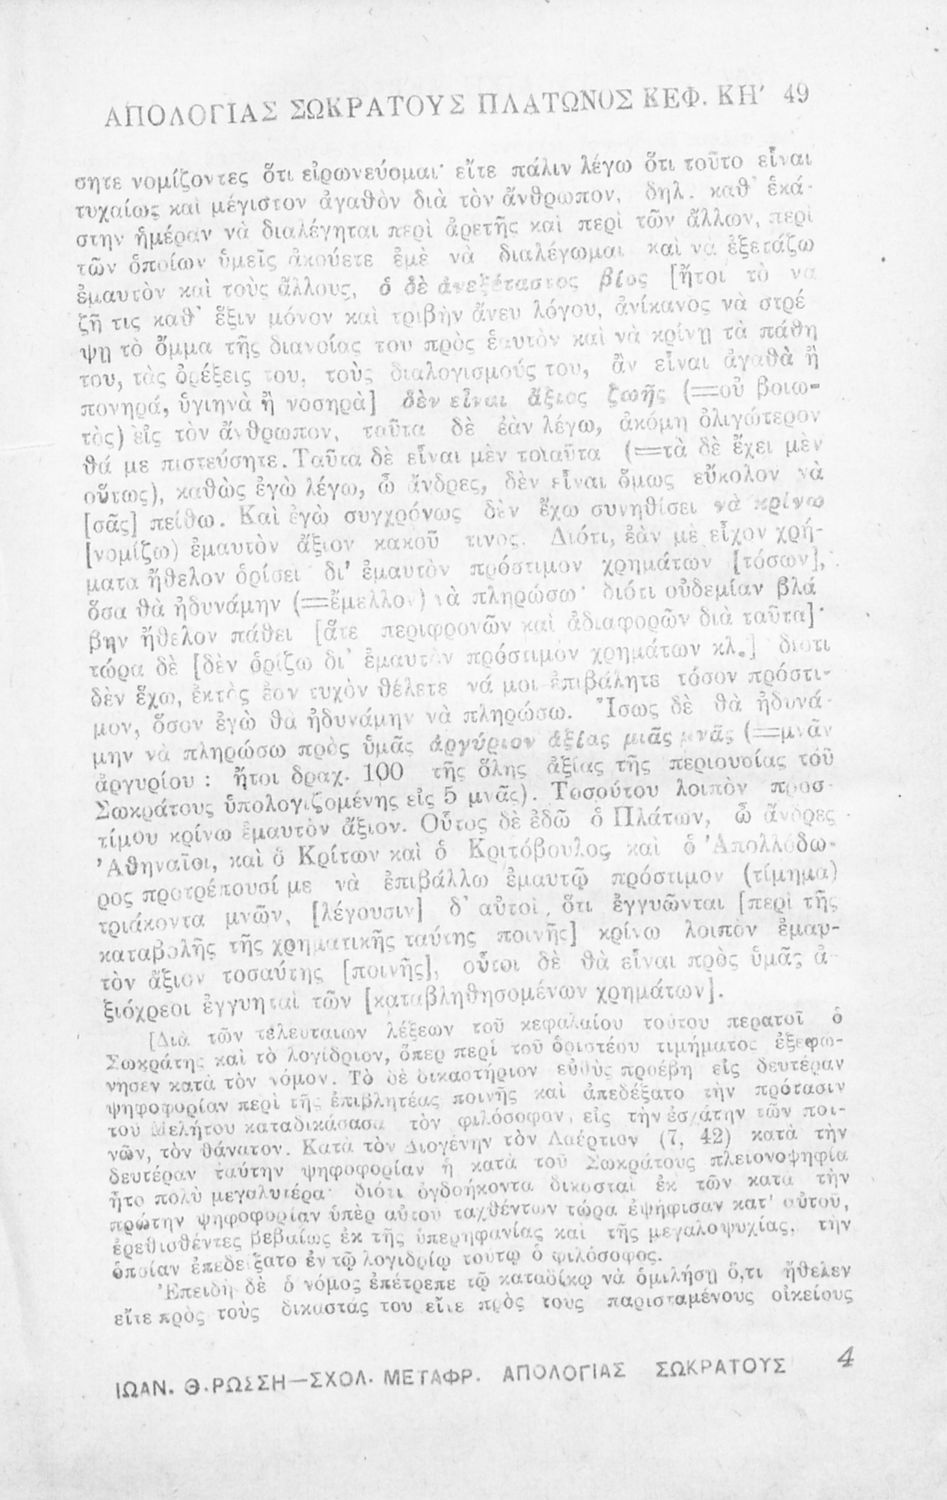 ΑΠΟΛΟΓΙΑΣ ΣΩΚΡΑΤΟΥΣ ΠΛΑΤΩΝΟΣ ΚΕΦ. ΚΗ′ 49
σητε νομίζοντες ὅτι εἰρωνεύομαι· εἴτε πάλιν λέγω ὅτι τοῦτο εἶναι
τυχαίως καὶ μέγιστον ἀγαθὸν διὰ τὸν ἄνθρωπον, δηλ. καθ᾽ ἑκά-
στην ἡμέραν νὰ διαλέγηται περὶ ἀρετῆς καὶ περὶ τῶν ἄλλων, περὶ
τῶν ὁποίων ὑμεῖς ἀκούετε ἐμὲ νὰ διαλέγωμαι καὶ νὰ ἐξετάζω
ἐμαυτὸν καὶ τοὺς ἄλλους, ὁ δὲ ἀνεξέταστος βίος [ἤτοι τὸ νὰ
ζῇ τις καθ᾽ ἕξιν μόνον καὶ τριβὴν ἄνευ λόγου, ἀνίκανος νὰ στρέ
ψῃ τὸ ὄμμα τῆς διανοίας του πρὸς ἑαυτὸν καὶ νὰ κρίνῃ τὰ πάθη
του, τὰς ὀρέξεις του, τοὺς διαλογισμούς του, ἂν εἶναι ἀγαθὰ ἢ
πονηρά, ὑγιηνὰ ἢ νοσηρὰ] δὲν εἶναι ἄξιος ζωῆς (=οὐ βοιω-
τὸς) εἰς τὸν ἄνθρωπον, ταῦτα δὲ ἐὰν λέγω, ἀκόμη ὀλιγώτερον
θά με πιστεύσητε. Ταῦτα δὲ εἶναι μὲν τοιαῦτα (=τὰ δὲ ἔχει μὲν
οὕτως), καθὼς ἐγὼ λέγω, ὦ ἄνδρες, δὲν εἶναι ὅμως εὔκολον νὰ
[σᾶς] πείθω. Καὶ ἐγὼ συγχρόνως δὲν ἔχω συνηθίσει νὰ κρίνω
[νομίζω) ἐμαυτὸν ἄξιον κακοῦ τινος. Διότι, ἐὰν μὲ εἶχον χρή-
ματα ἤθελον ὁρίσει δι᾽ ἐμαυτὸν πρόστιμον χρημάτων [τόσων],
ὅσα θὰ ἠδυνάμην (=ἔμελλον) νὰ πληρώσω· διότι οὐδεμίαν βλά
βην ἤθελον πάθει [ἅτε περιφρονῶν καὶ ἀδιαφορῶν διὰ ταῦτα]·
τώρα δὲ [δὲν ὁρίζω δι᾽ ἐμαυτὸν πρόστιμον χρημάτων κλ.] διότι
δὲν ἔχω, ἐκτὸς ἐὰν τυχὸν θέλετε νά μοι ἐπιβάλητε τόσον πρόστι-
μον, ὅσον ἐγὼ θὰ ἠδυνάμην νὰ πληρώσω. Ἴσως δὲ θὰ ἠδυνά-
μην νὰ πληρώσω πρὸς ὑμᾶς ἀργύριον ἀξίας μιᾶς μνᾶς (=μνᾶν
ἀργυρίου : ἤτοι δραχ. 100 τῆς ὅλης ἀξίας τῆς περιουσίας τοῦ
Σωκράτους ὑπολογιζομένης εἰς 5 μνᾶς). Τοσούτου λοιπὸν προσ-
τίμου κρίνω ἐμαυτὸν ἄξιον. Οὗτος δὲ ἐδῶ ὁ Πλάτων, ὦ ἄνδρες
Ἀθηναῖοι, καὶ ὁ Κρίτων καὶ ὁ Κριτόβουλος καὶ ὁ Ἀπολλόδω-
ρος προτρέπουσί με νὰ ἐπιβάλλω ἐμαυτῷ πρόστιμον (τίμημα)
τριάκοντα μνῶν, [λέγουσιν] δ᾽ αὐτοί, ὅτι ἐγγυῶνται [περὶ τῆς
καταβολῆς τῆς χρηματικῆς ταύτης ποινῆς] κρίνω λοιπὸν ἐμαυ-
τὸν ἄξιον τοσαύτης [ποινῆς], οὗτοι δὲ θὰ εἶναι πρὸς ὑμᾶς ἀ-
ξιόχρεοι ἐγγυηταὶ τῶν [καταβληθησομένων χρημάτων].
[Διὰ τῶν τελευταίων λέξεων τοῦ κεφαλαίου τούτου περατοῖ ὁ
Σωκράτης καὶ τὸ λογίδριον, ὅπερ περὶ τοῦ ὁριστέου τιμήματος ἐξεφώ-
νησεν κατὰ τὸν νόμον. Τὸ δὲ δικαστήριον εὐθὺς προέβη εἰς δευτέραν
ψηφοφορίαν περὶ τῆς ἐπιβλητέας ποινῆς καὶ ἀπεδέξατο τὴν πρότασιν
τοῦ Μελήτου καταδικάσασα τὸν φιλόσοφον, εἰς τὴν ἐσχάτην τῶν ποι-
νῶν, τὸν θάνατον. Κατὰ τὸν Διογένην τὸν Λαέρτιον (7, 42) κατὰ τὴν
δευτέραν ταύτην ψηφοφορίαν ἡ κατὰ τοῦ Σωκράτους πλειονοψηφία
ἦτο πολὺ μεγαλυτέρα· διότι ὀγδοήκοντα δικασταὶ ἐκ τῶν κατὰ τὴν
πρώτην ψηφοφορίαν ὑπὲρ αὐτοῦ ταχθέντων τώρα ἐψήφισαν κατ᾽ αὐτοῦ,
ἐρεθισθέντες βεβαίως ἐκ τῆς ὑπερηφανίας καὶ τῆς μεγαλοψυχίας, τὴν
ὁποίαν ἐπεδείξατο ἐν τῷ λογιδρίῳ τούτῳ ὁ φιλόσοφος.
Ἐπειδὴ δὲ ὁ νόμος ἐπέτρεπε τῷ καταδίκῳ νὰ ὁμιλήσῃ ὅ,τι ἤθελεν
εἴτε πρὸς τοὺς δικαστάς του εἴτε πρὸς τοὺς παρισταμένους οἰκείους
ΙΩΑΝ. Θ. ΡΩΣΣΗ—ΣΧΟΛ. ΜΕΤΑΦΡ. ΑΠΟΛΟΓΙΑΣ ΣΩΚΡΑΤΟΥΣ 4